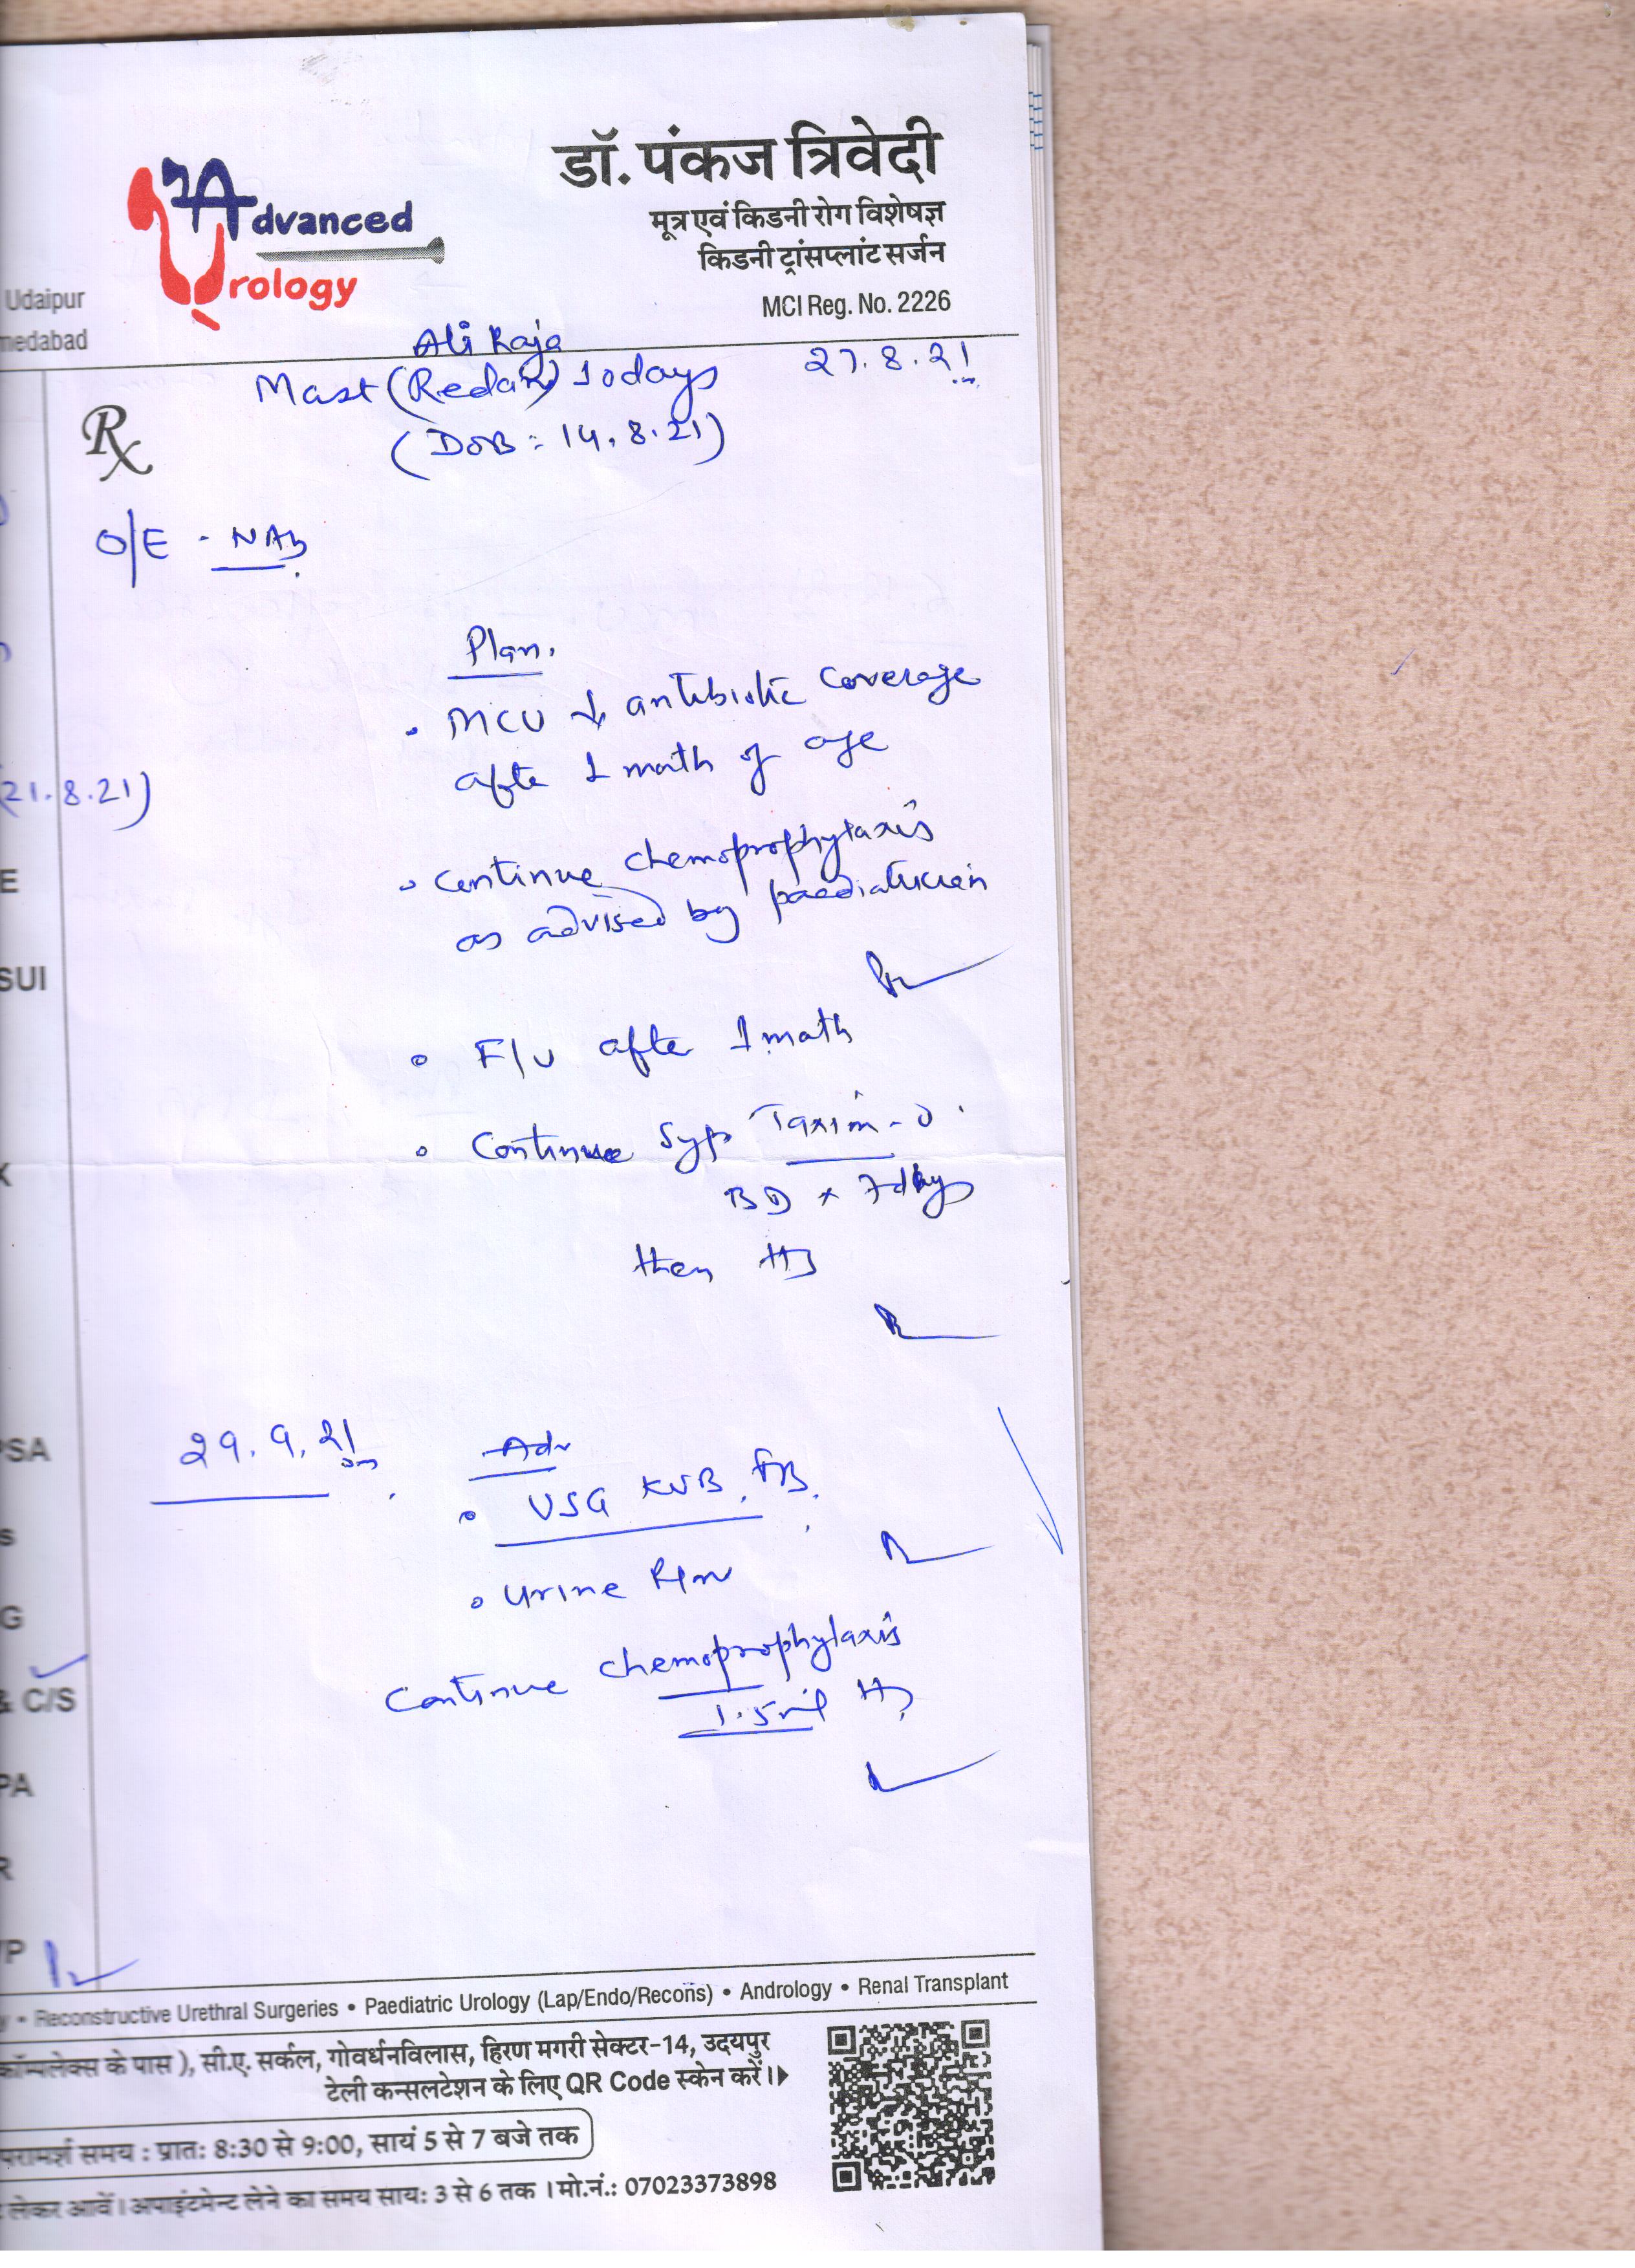 Advanced
Urology
डॉ. पंकज त्रिवेदी
मूत्र एवं किडनी रोग विशेषज्ञ
किडनी ट्रांसप्लांट सर्जन
MCI Reg. No. 2226
Udaipur
medabad
Ali Raja
27.8.21
Mast (Redan) 10days
(DOB : 14.8.21)
Rx
O/E - NAD
Plan.
• MCU antibiotic coverage
afte 1 month of age
(21.8.21)
• continue chemoprophylaxis
as advised by paediatrician
E
SUI
• F/U afte 1 month
• Continue Syp Taxim-O
BD x 7days
then HS
29.9.21
Adv
PSA
• USG KUB,
• Urine R/M
G
Continue chemoprophylaxis
& C/S
1.5ml HS
PA
R
/P
y • Reconstructive Urethral Surgeries • Paediatric Urology (Lap/Endo/Recons) • Andrology • Renal Transplant
कॉम्पलेक्स के पास ), सी.ए. सर्कल, गोवर्धनविलास, हिरण मगरी सेक्टर-14, उदयपुर
टेली कन्सलटेशन के लिए QR Code स्केन करें।
परामर्श समय : प्रातः 8:30 से 9:00, सायं 5 से 7 बजे तक
लेकर आवें। अपाइंटमेन्ट लेने का समय सायः 3 से 6 तक । मो.नं.: 07023373898